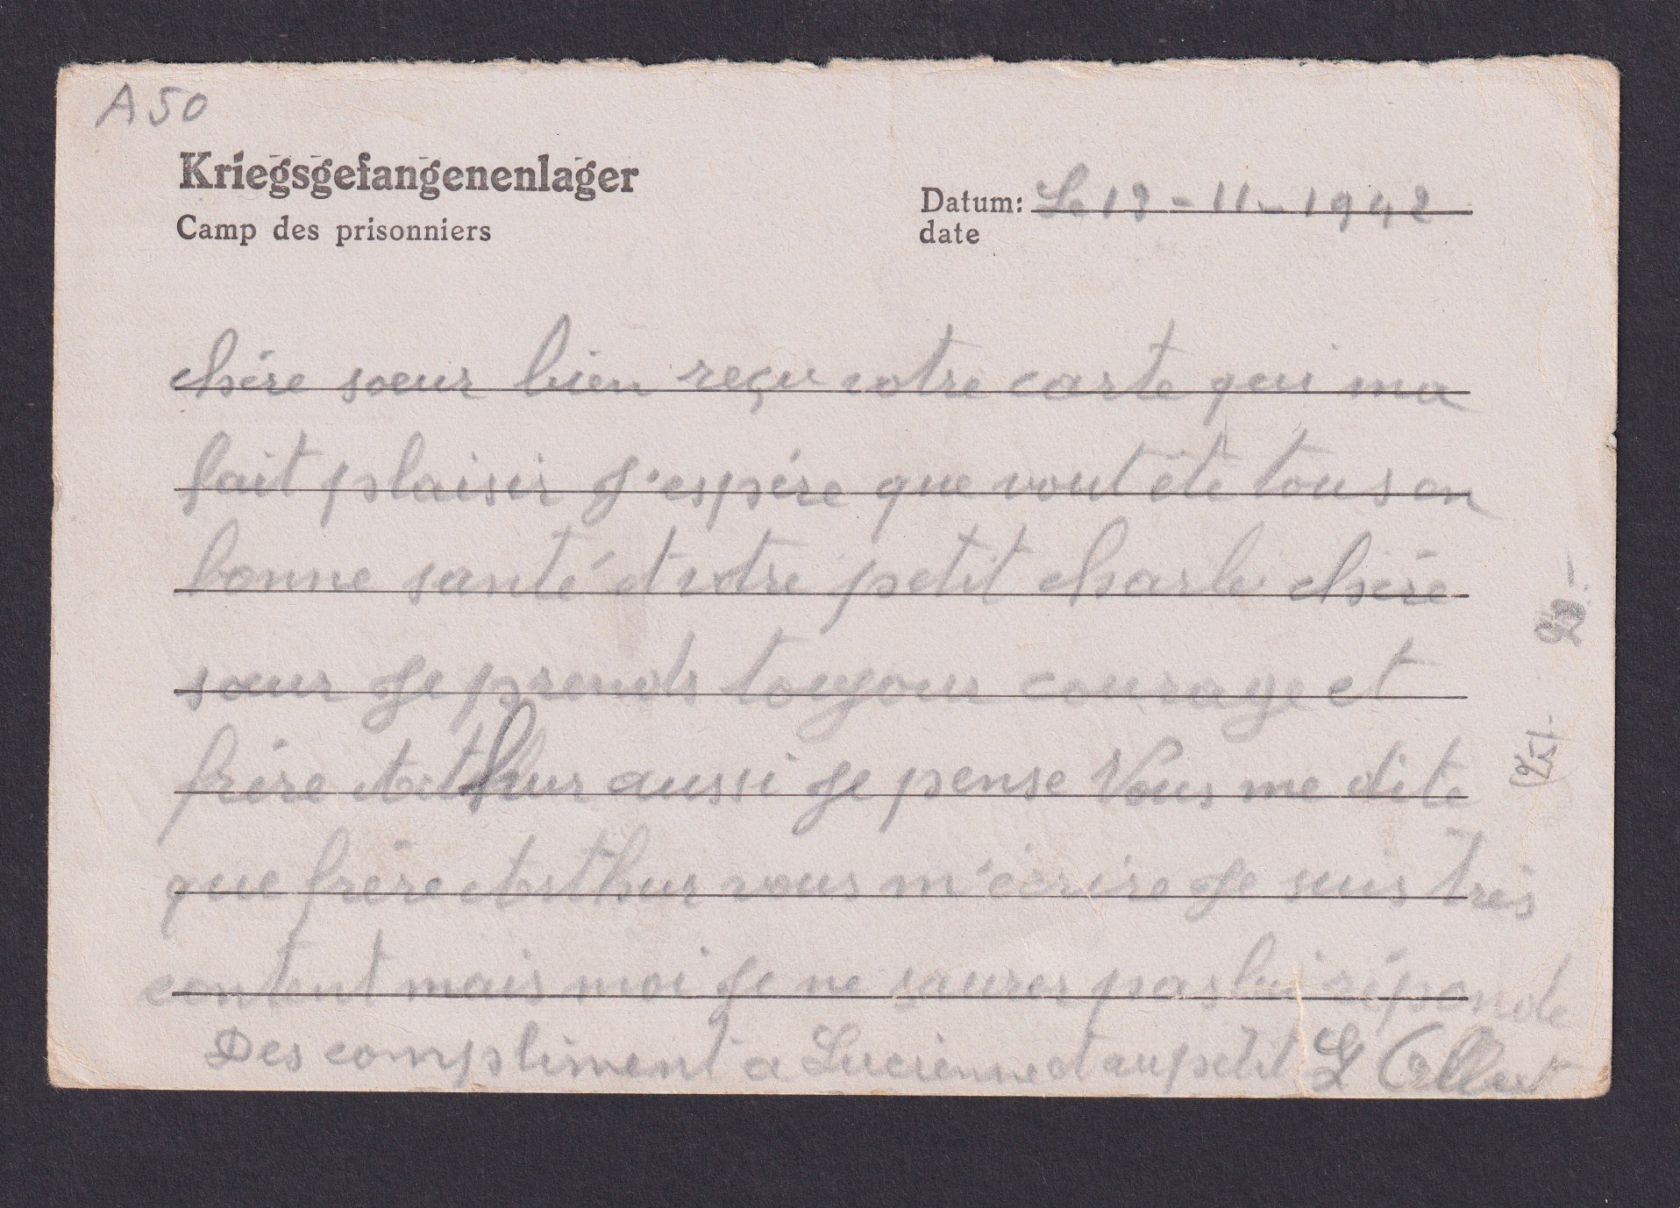 A 50
Kriegsgefangenenlager
Camp des prisonniers
Datum: Le 13-11-1942
date
chère soeur bien reçu votre carte qui ma
fait plaisir J'espère que vout ête tous en
bonne santé et votre petit charle chère
soeur Je prends toujour courage et
frère Arthur aussi Je pense Vous me dite
que frère Arthur vous m'écrire Je suis très
content mais moi Je ne saurer pas lui réponde
Des compliment a Lucienne et au petit